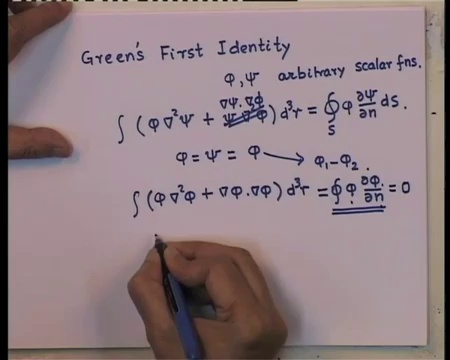 Green's First Identity
φ, ψ arbitrary scalar fns.
∇ψ.∇φ
∫ (φ∇²ψ + ψ∇²φ) d³r = ∮_S φ ∂ψ/∂n dS.
φ = ψ = φ → φ₁-φ₂.
∫ (φ∇²φ + ∇φ.∇φ) d³r = ∮ φ ∂φ/∂n = 0